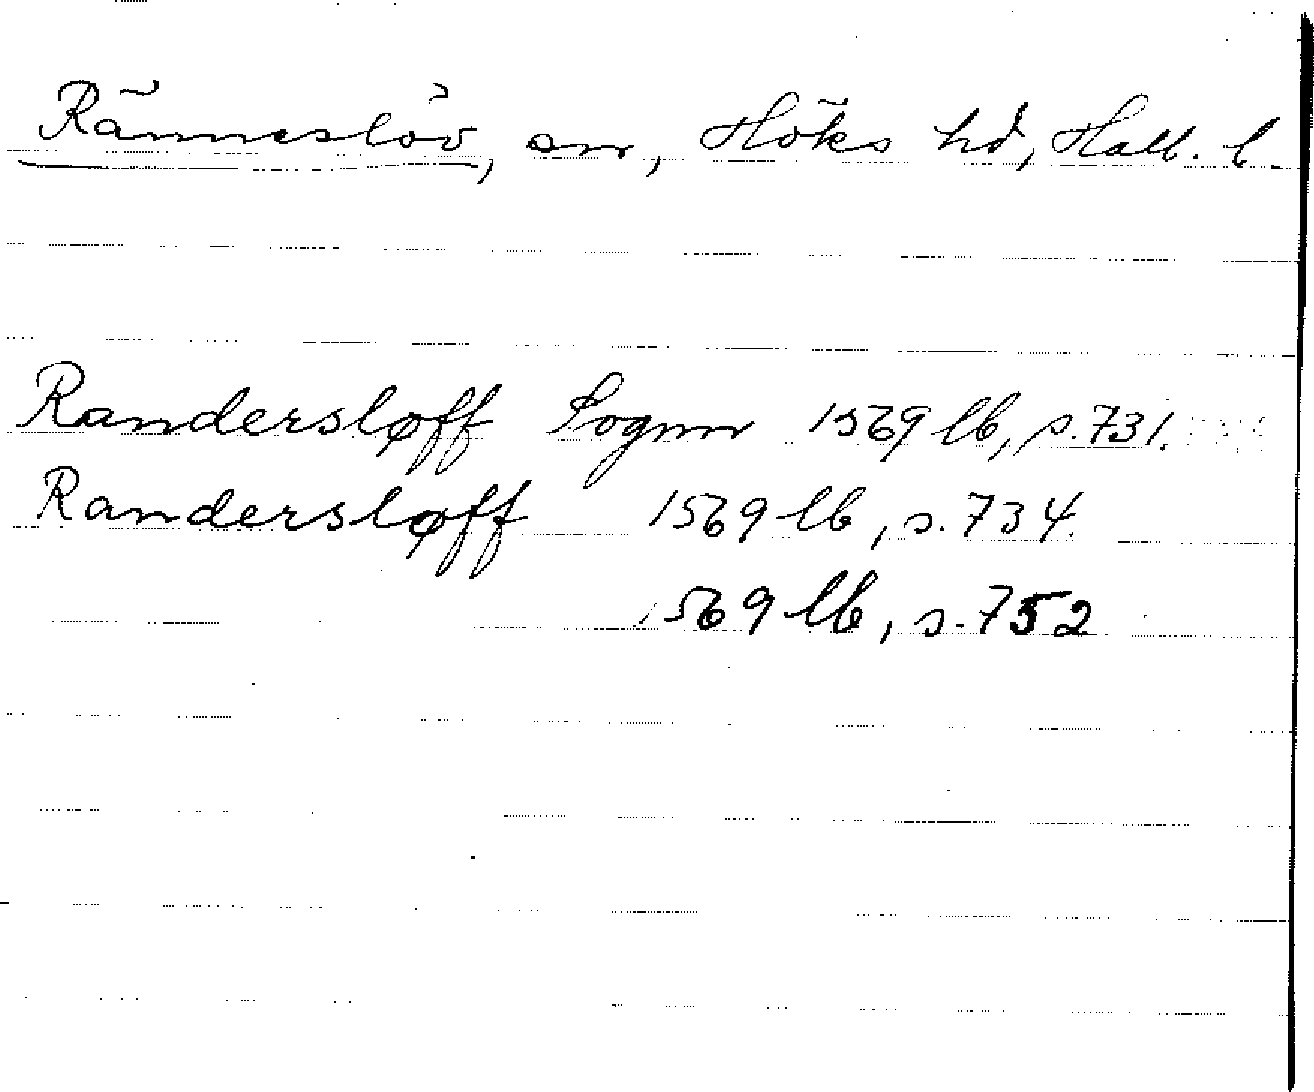 Ränneslöv, sn, Höks hd, Hall. l.
Randersløff Sognn 1569 lb, s. 731.
Randersløff 1569 lb, s. 734.
1569 lb, s. 752